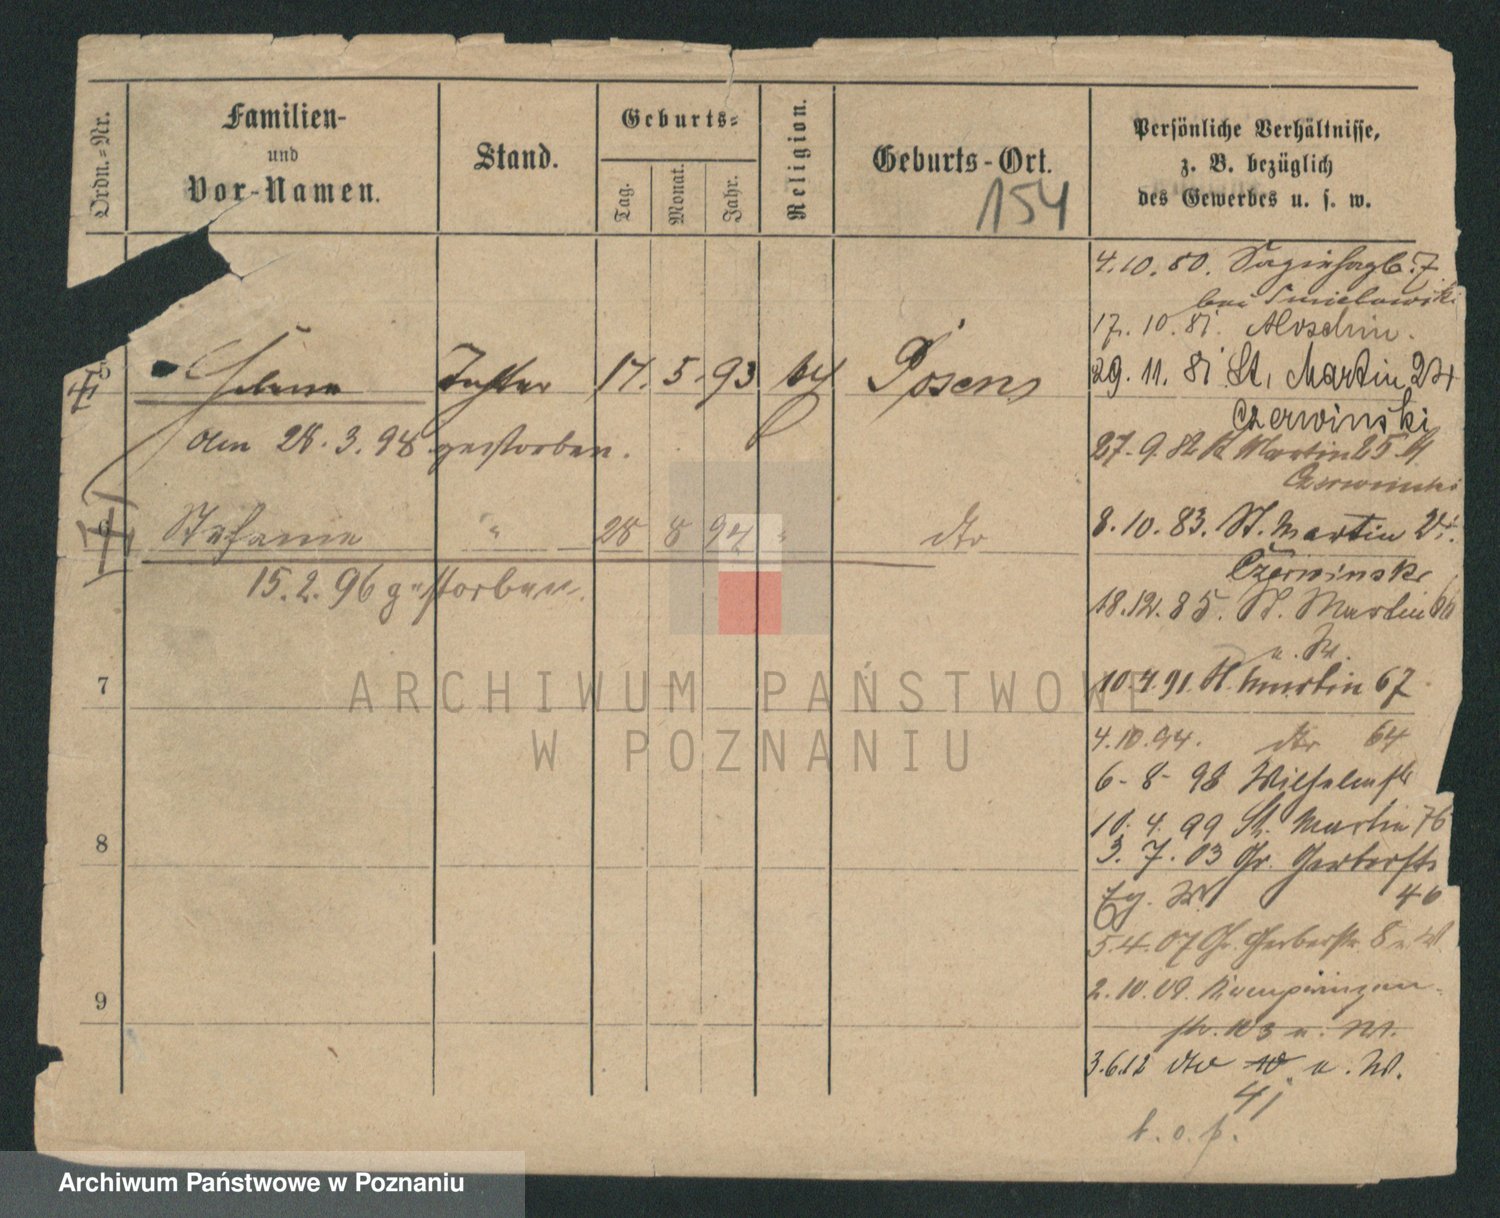 Ordn.=Nr.
Familien-
und
Vor-Namen.
Stand.
Geburts=
Tag.
Monat.
Jahr.
Religion.
Geburts-Ort.
154
Persönliche Verhältnisse,
z. B. bezüglich
des Gewerbes u. s. w.
Helene Tochter 17. 5. 93 Posen
den 28. 3. 98 gestorben.
6 Stefanie " 28 8 94 " dto
15. 2. 96 gestorben.
7
8
9
4. 10. 80. 7
bei Smielowski
17. 10. 81.
29. 11. 81 St. Martin 24
Czerwinski
27. 9. 82 St Martin 25
Czerwinski
8. 10. 83. St. Martin 24.
Czerwinski
18. 12. 85. St. Martin 66
u. W.
10. 4. 91. St. Martin 67
4. 10. 94. dto 64
6 - 8 - 98 Wilhelmstr
10. 4. 99 St. Martin 76
3. 7. 03 Gr. Gerberstr
W. 40
5. 4. 07 Gr. Gerberstr. 8 u. W.
2. 10. 09. Kronprinzen-
str. 103 u. W.
3. 6. 12 dto u. W.
41
ARCHIWUM PAŃSTWOWE
W POZNANIU
Archiwum Państwowe w Poznaniu